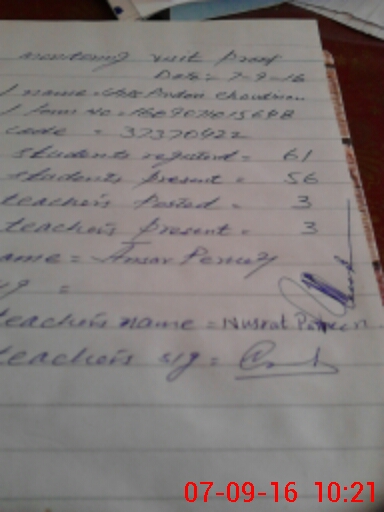 monitoring visit proof
Date:- 7-9-16
name = Choudhran
Form No = 
code = 37370422
students registerd = 61
students present = 56
teachers Posted = 3
teachers present = 3
ame = Ansar Pervez
=
teachers name = Nusrat Parveen
teachers sig =
07-09-16 10:21